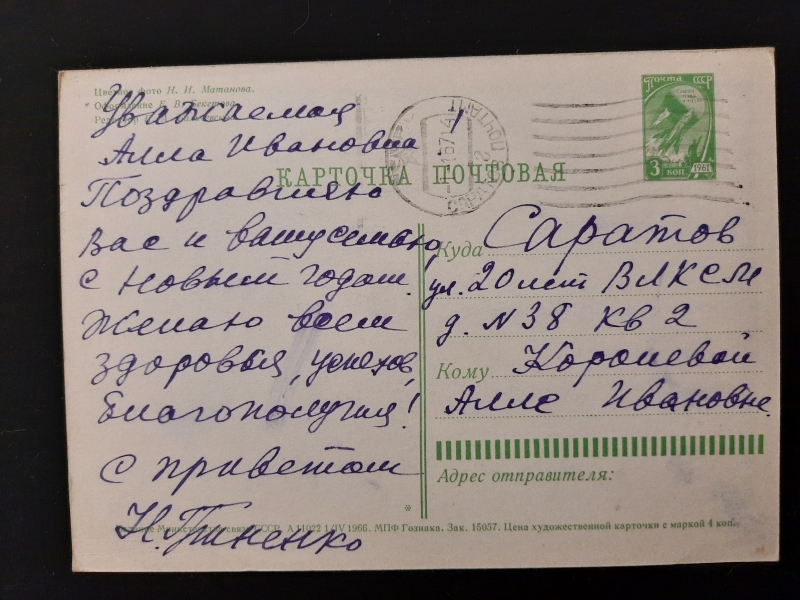 Цветное фото Н. И. Матанова.
Оформление Е. В. Бекетова
Уважаемая
Алла Ивановна
Поздравляю
Вас и вашу семью,
с Новым годом.
Желаю всем
здоровья, успехов,
благополучия!
с приветом
ПОЧТА СССР
3 КОП
1961
КАРТОЧКА ПОЧТОВАЯ
Куда Саратов
ул. 20 лет ВЛКСМ
д. N 38 кв 2
Кому Королевой
Алле Ивановне.
Адрес отправителя:
Министерства связи СССР. А 11022 1/IV 1966. МПФ Гознака. Зак. 15037. Цена художественной карточки с маркой 4 коп.